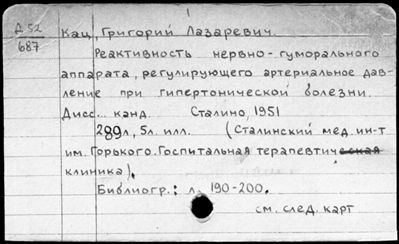 1
Д 52
687
Кац, Григорий Лазаревич.
Реактивность нервно-гуморального
аппарата, регулирующего артериальное дав-
ление при гипертонической болезни.
Дисс... канд. Сталино, 1951
289л, 5л. илл. (Сталинский мед. ин-т
им. Горького. Госпитальная терапевтическая
клиника).
Библиогр.: л. 190-200.
см. след. карт